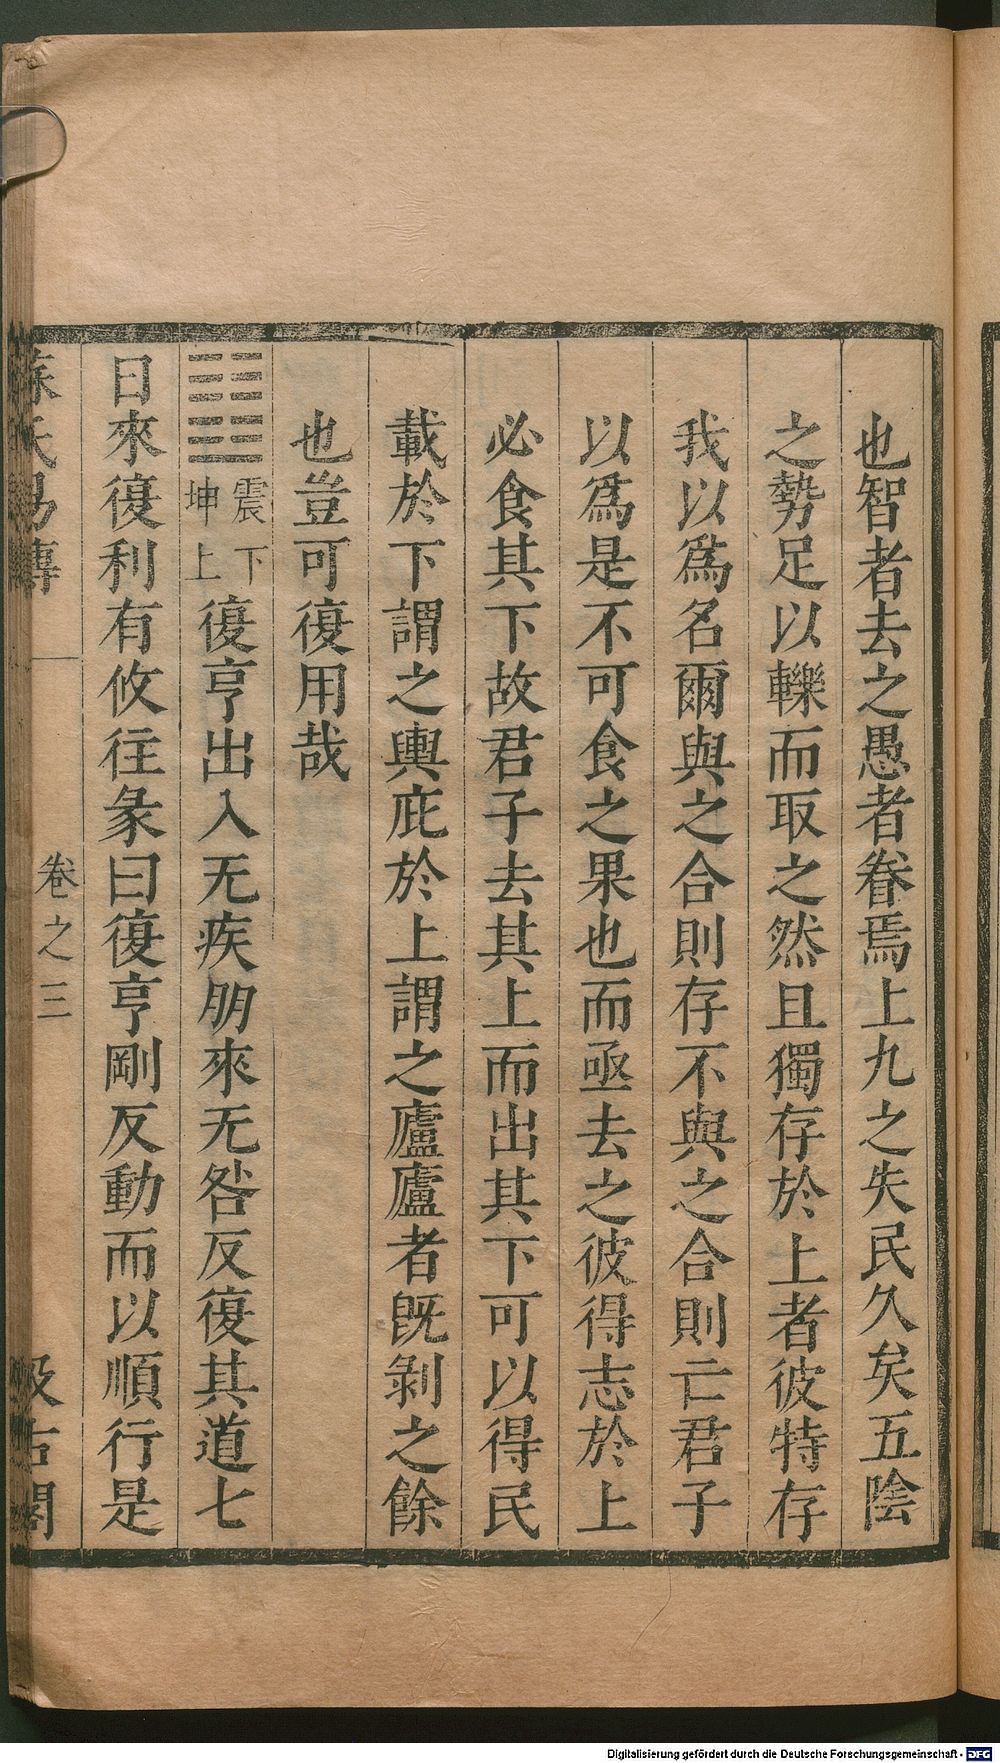 也智者去之愚者眷焉上九之失民久矣五陰
之勢足以轢而取之然且獨存於上者彼特存
我以爲名爾與之合則存不與之合則亡君子
以爲是不可食之果也而亟去之彼得志於上
必食其下故君子去其上而出其下可以得民
載於下謂之輿庇於上謂之廬廬者旣剝之餘
也豈可復用哉
䷗震下坤上復亨出入无疾朋來无咎反復其道七
日來復利有攸往彖曰復亨剛反動而以順行是
蘇氏易傳 卷之三 汲古閣
Digitalisierung gefördert durch die Deutsche Forschungsgemeinschaft - DFG